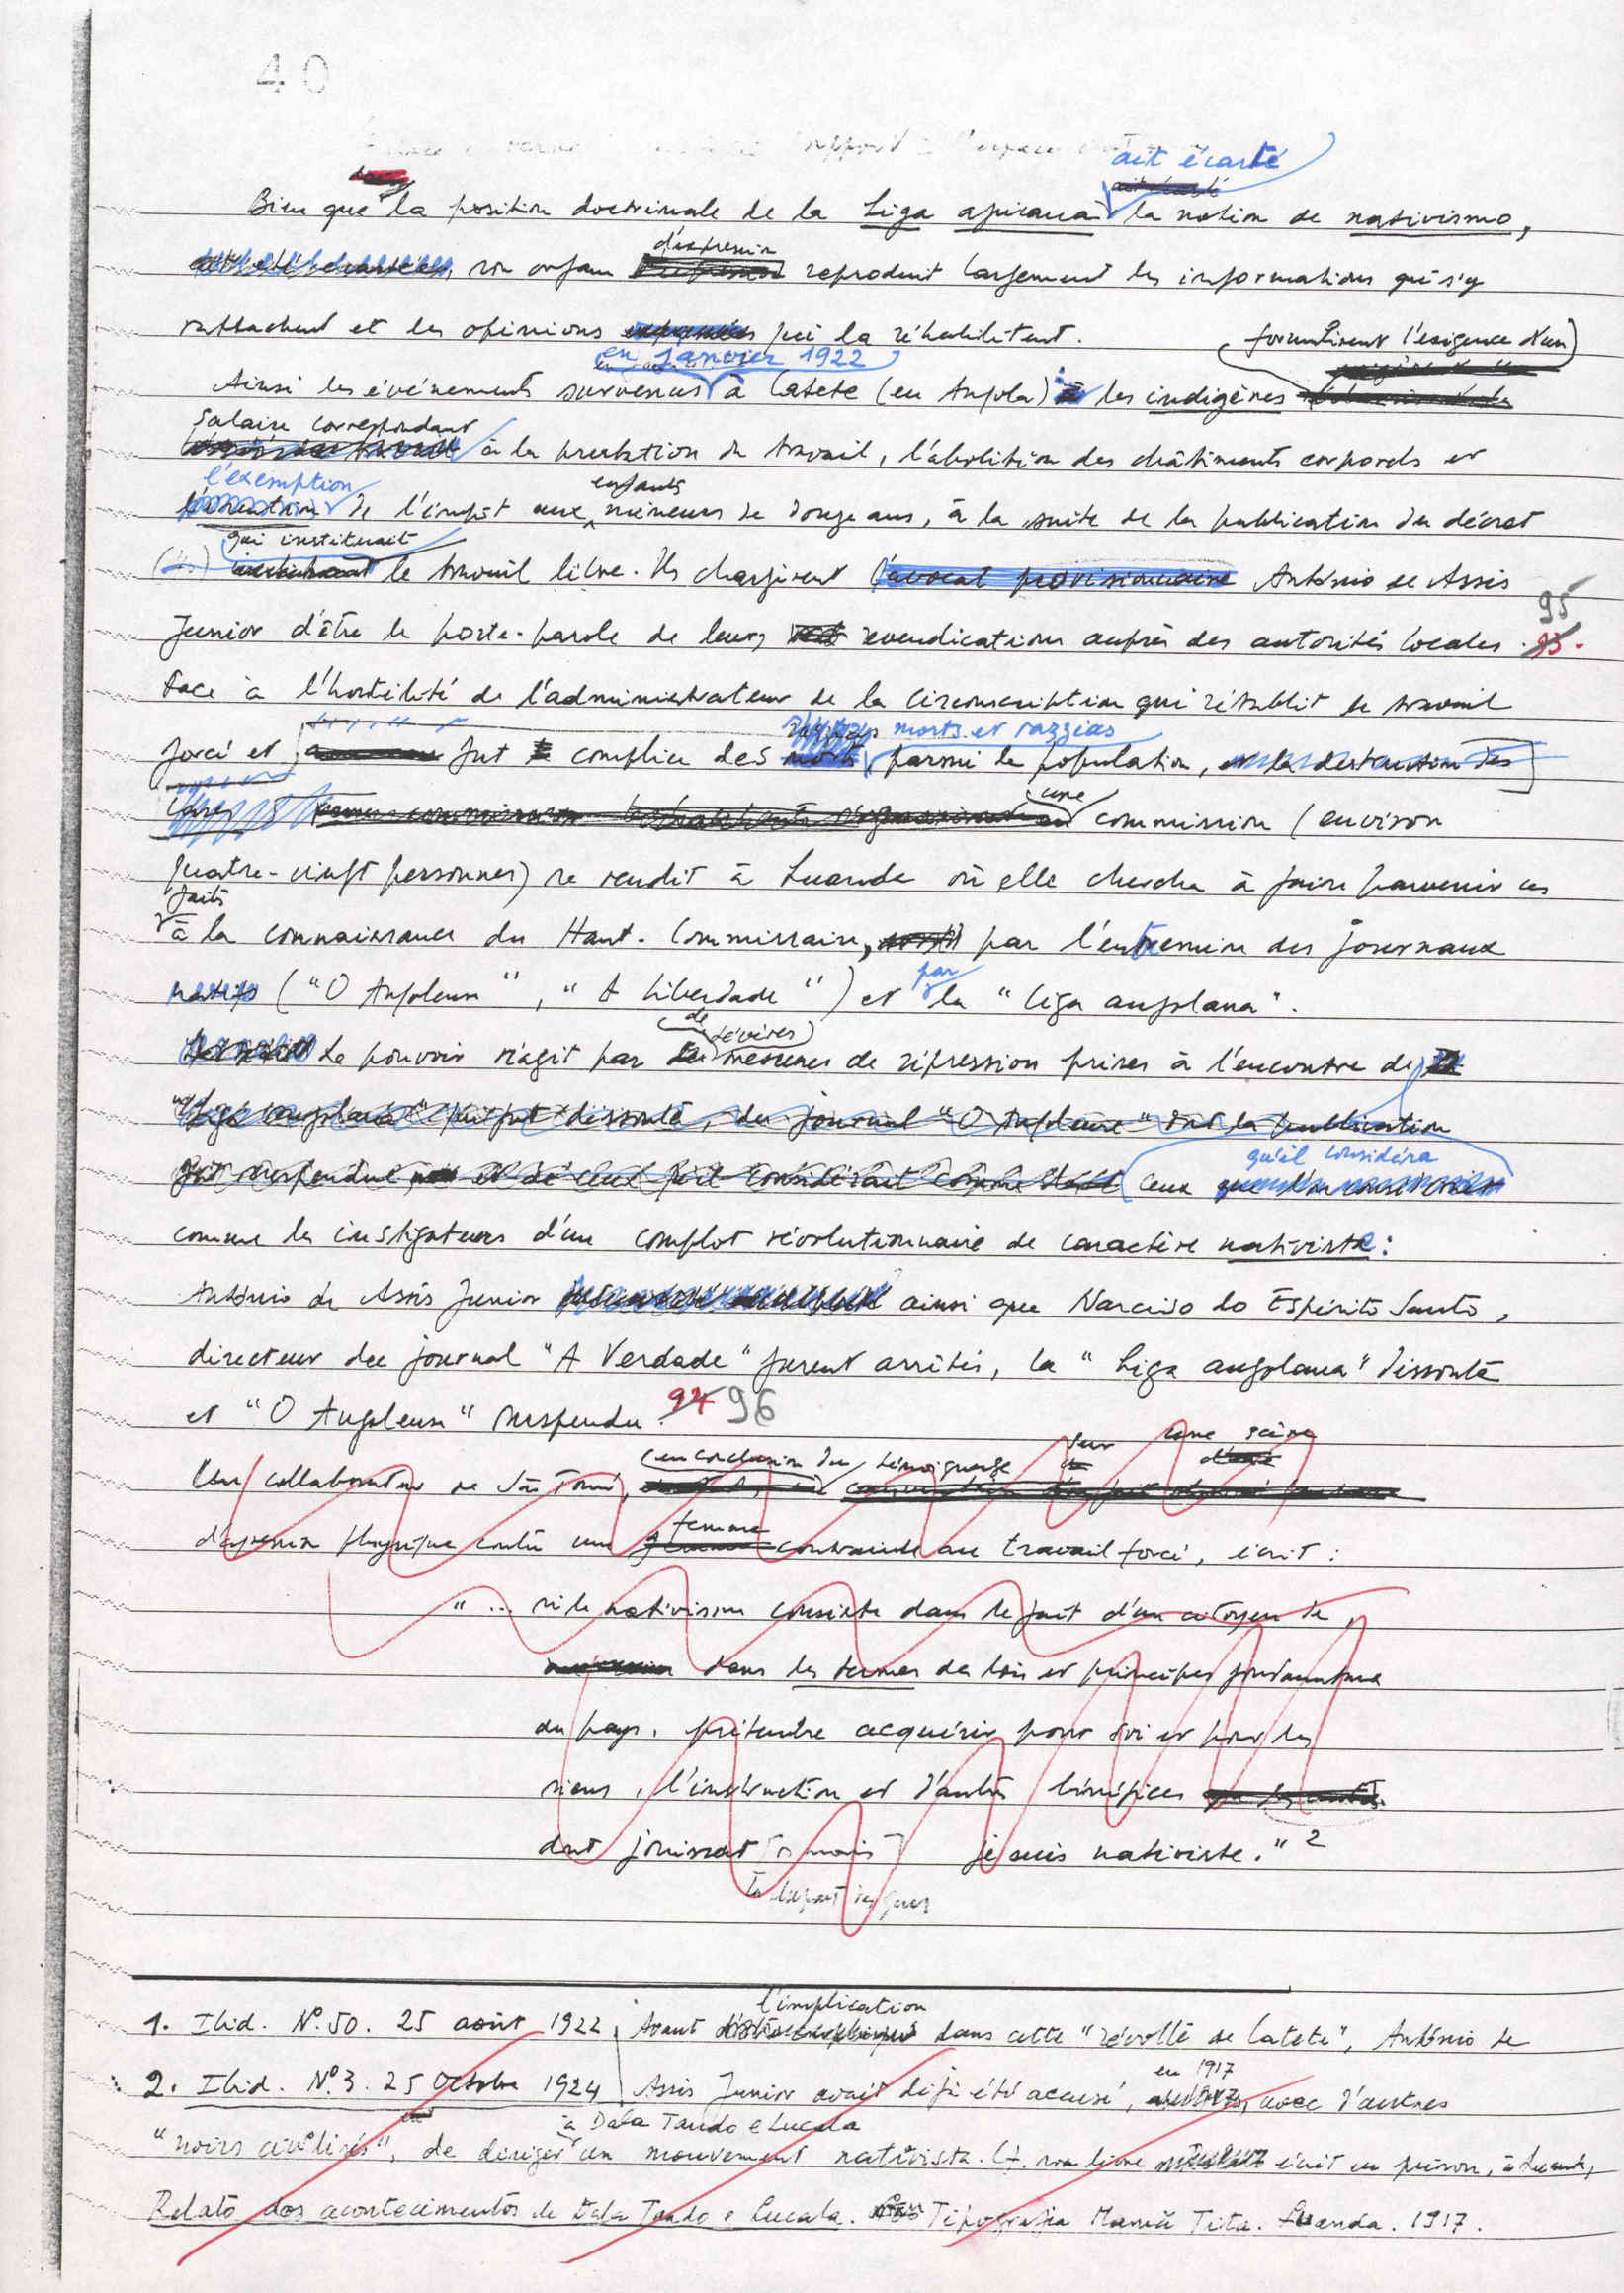 40
ait écarté
Bien que la position doctrinale de la Liga africana la notion de nativismo,
son organe d'expression reproduit largement les informations qui s'y
rattachent et les opinions qui la réhabilitent.
en Janvier 1922
formulèrent l'exigence d'un
Ainsi les événements survenus à Catete (en Angola) : les indigènes
salaire correspondant à la prestation du travail, l'abolition des châtiments corporels et
l'exemption de l'impôt aux enfants mineurs de douze ans, à la suite de la publication du décret
qui instituait le travail libre. Ils chargèrent l'avocat provisionnaire António de Assis
Junior d'être le porte-parole de leurs revendications auprès des autorités locales. 95
Face à l'hostilité de l'administrateur de la circonscription qui rétablit le travail
forcé et fut complice des morts et razzias parmi la population,
une commission (environ
quatre-vingt personnes) se rendit à Luanda où elle chercha à faire parvenir ces
faits
à la connaissance du Haut-Commissaire, par l'entremise des journaux
natifs ("O Angolense", "A Liberdade") et par la "Liga angolana".
Le pouvoir réagit par de sévères mesures de répression prises à l'encontre de
"Liga angolana" qui fut dissoute, du journal "O Angolense" dont la publication
fut suspendue et de ceux qu'il considérait comme ceux qu'il considéra
comme les instigateurs d'un complot révolutionnaire de caractère nativiste :
António de Assis Junior ainsi que Narciso do Espírito Santo,
directeur du journal "A Verdade" furent arrêtés, la "Liga angolana" dissoute
et "O Angolense" suspendu. 94 96
Un collaborateur de São Tomé, en conclusion du témoignage sur une scène
d'agression physique contre une femme contrainte au travail forcé, écrit :
"... si le nativisme consiste dans le fait d'un citoyen de
dans les termes des lois et principes fondamentaux
du pays, prétendre acquérir pour soi et pour les
siens, l'instruction et d'autres bénéfices
dont jouissent je suis nativiste." 2
1. Ibid. Nº. 50. 25 août 1922
Avant l'implication dans cette "révolte de Catete", António de
2. Ibid. Nº. 3. 25 Octobre 1924
Assis Junior avait déjà été accusé, en 1917 avec d'autres
"noirs civilisés", de diriger à Dala Tando e Lucala un mouvement nativista. Cf. son livre écrit en prison, à Luanda,
Relato dos acontecimentos de Dala Tando e Lucala. Tipografia Mamã Tita. Luanda. 1917.